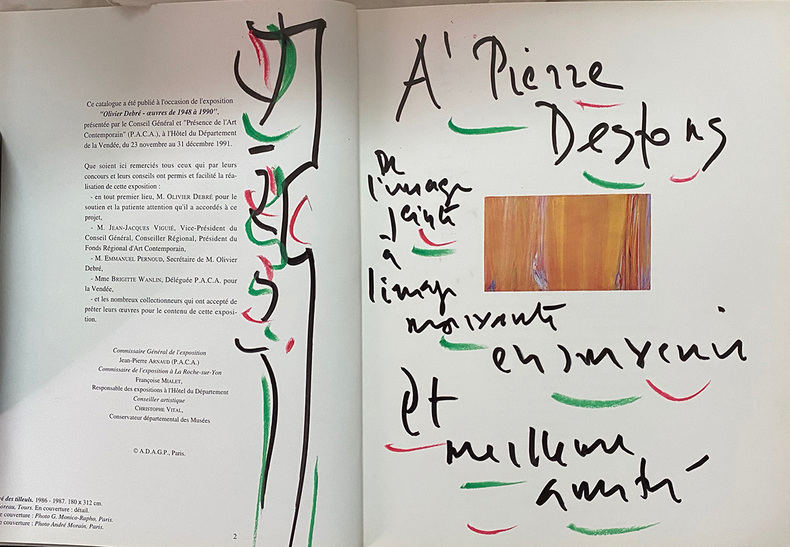 Ce catalogue a été publié à l'occasion de l'exposition
"Olivier Debré - œuvres de 1948 à 1990",
présentée par le Conseil Général et "Présence de l'Art
Contemporain" (P.A.C.A.), à l'Hôtel du Département
de la Vendée, du 23 novembre au 31 décembre 1991.
Que soient ici remerciés tous ceux qui par leurs
concours et leurs conseils ont permis et facilité la réa-
lisation de cette exposition :
- en tout premier lieu, M. OLIVIER DEBRÉ pour le
soutien et la patiente attention qu'il a accordés à ce
projet,
- M. JEAN-JACQUES VIGUIÉ, Vice-Président du
Conseil Général, Conseiller Régional, Président du
Fonds Régional d'Art Contemporain,
- M. EMMANUEL PERNOUD, Secrétaire de M. Olivier
Debré,
- Mme BRIGITTE WANLIN, Déléguée P.A.C.A. pour
la Vendée,
- et les nombreux collectionneurs qui ont accepté de
prêter leurs œuvres pour le contenu de cette exposi-
tion.
Commissaire Général de l'exposition
Jean-Pierre ARNAUD (P.A.C.A.)
Commissaire de l'exposition à La Roche-sur-Yon
Françoise MIALET,
Responsable des expositions à l'Hôtel du Département
Conseiller artistique
CHRISTOPHE VITAL,
Conservateur départemental des Musées
© A.D.A.G.P., Paris.
des tilleuls. 1986 - 1987. 180 x 312 cm.
Tours. En couverture : détail.
couverture : Photo G. Monico-Rapho, Paris.
couverture : Photo André Morain, Paris.
2
A' Pierre
Desfons
De
l'image
peinte
à
l'image
mouvante
en souvenir
et
meilleure
amitié